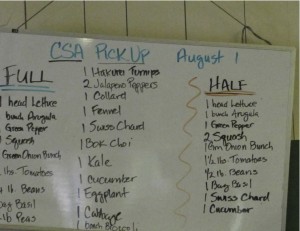 CSA PICKUP August 1
FULL
1 head Lettuce
bunch Arugula
1 Green Pepper
1 Squash
1 Green Onion Bunch
lb. Tomatoes
lb. Beans
Bag Basil
lb Peas
1 Hakurei Turnips
2 Jalapeno Peppers
1 Collard
1 Fennel
1 Swiss Chard
1 Bok Choi
1 Kale
1 cucumber
1 Eggplant
1 Cabbage
bunch Broccoli
HALF
1 head Lettuce
1 bunch Arugula
1 Green Pepper
2 Squash
1 Grn Onion Bunch
1/2 lb Tomatoes
1/2 lb. Beans
1 Bag Basil
1 Swiss Chard
1 Cucumber